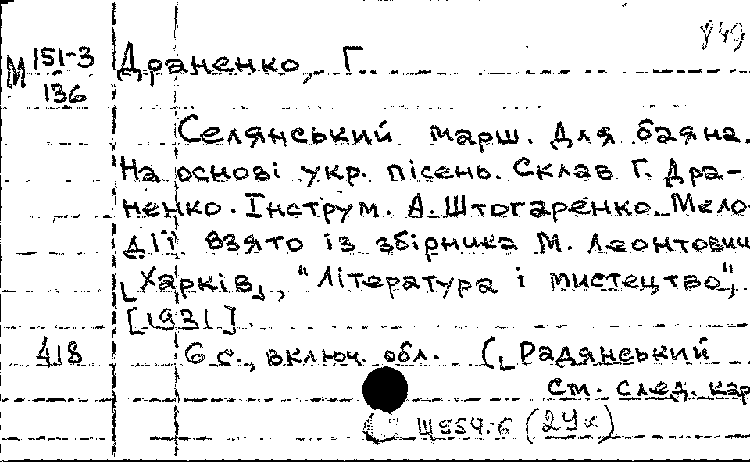 849
М 151-3 Драненко, Г.
136
Селянський марш. Для баяна.
На основі укр. пісень. Склав Г. Дра-
ненко. Інструм. А. Штогаренко. Мело-
дії взято із збірника М. Леонтович
[Харків], "Література і мистецтво",
[1931].
418 6 с., включ. обл. ([Радянський
См. след. кар
Щ954.6 (2Ук)